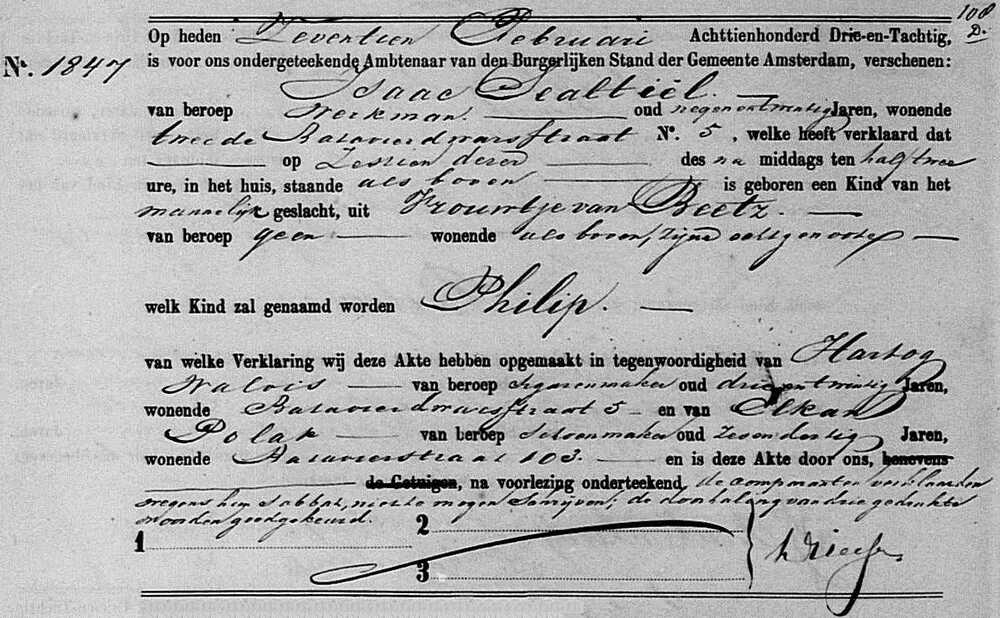 108
D.
Op heden Zeventien Februari Achttienhonderd Drie-en-Tachtig,
N°. 1847 is voor ons ondergeteekende Ambtenaar van den Burgerlijken Stand der Gemeente Amsterdam, verschenen:
Isaac Sealtiël.
van beroep Werkman. oud negenentwintig Jaren, wonende
tweede Batavierdwarsstraat N°. 5, welke heeft verklaard dat
op Zestien dezer des na middags ten half twee
ure, in het huis, staande als boven is geboren een Kind van het
mannelijk geslacht, uit Vrouwtje van Beetz.
van beroep geen wonende als boven, zijne echtgenoote
welk Kind zal genaamd worden Philip.
van welke Verklaring wij deze Akte hebben opgemaakt in tegenwoordigheid van Hartog
Walvis van beroep Sigarenmaker oud drieentwintig Jaren,
wonende Batavierdwarsstraat 5 en van Elkan
Polak van beroep Schoenmaker oud zesendertig Jaren,
wonende Batavierstraat 103. en is deze Akte door ons, benevens
de Getuigen, na voorlezing onderteekend, de comparanten verklaarden
wegens hun Sabbat, niet te mogen schrijven; de doorhaling van drie gedrukte
woorden goedgekeurd.
1
2
3